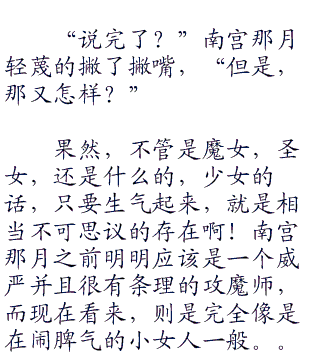 “说完了？”南宫那月
轻蔑的撇了撇嘴，“但是，
那又怎样？”
果然，不管是魔女，圣
女，还是什么的，少女的
话，只要生气起来，就是相
当不可思议的存在啊！南宫
那月之前明明应该是一个威
严并且很有条理的攻魔师，
而现在看来，则是完全像是
在闹脾气的小女人一般。。